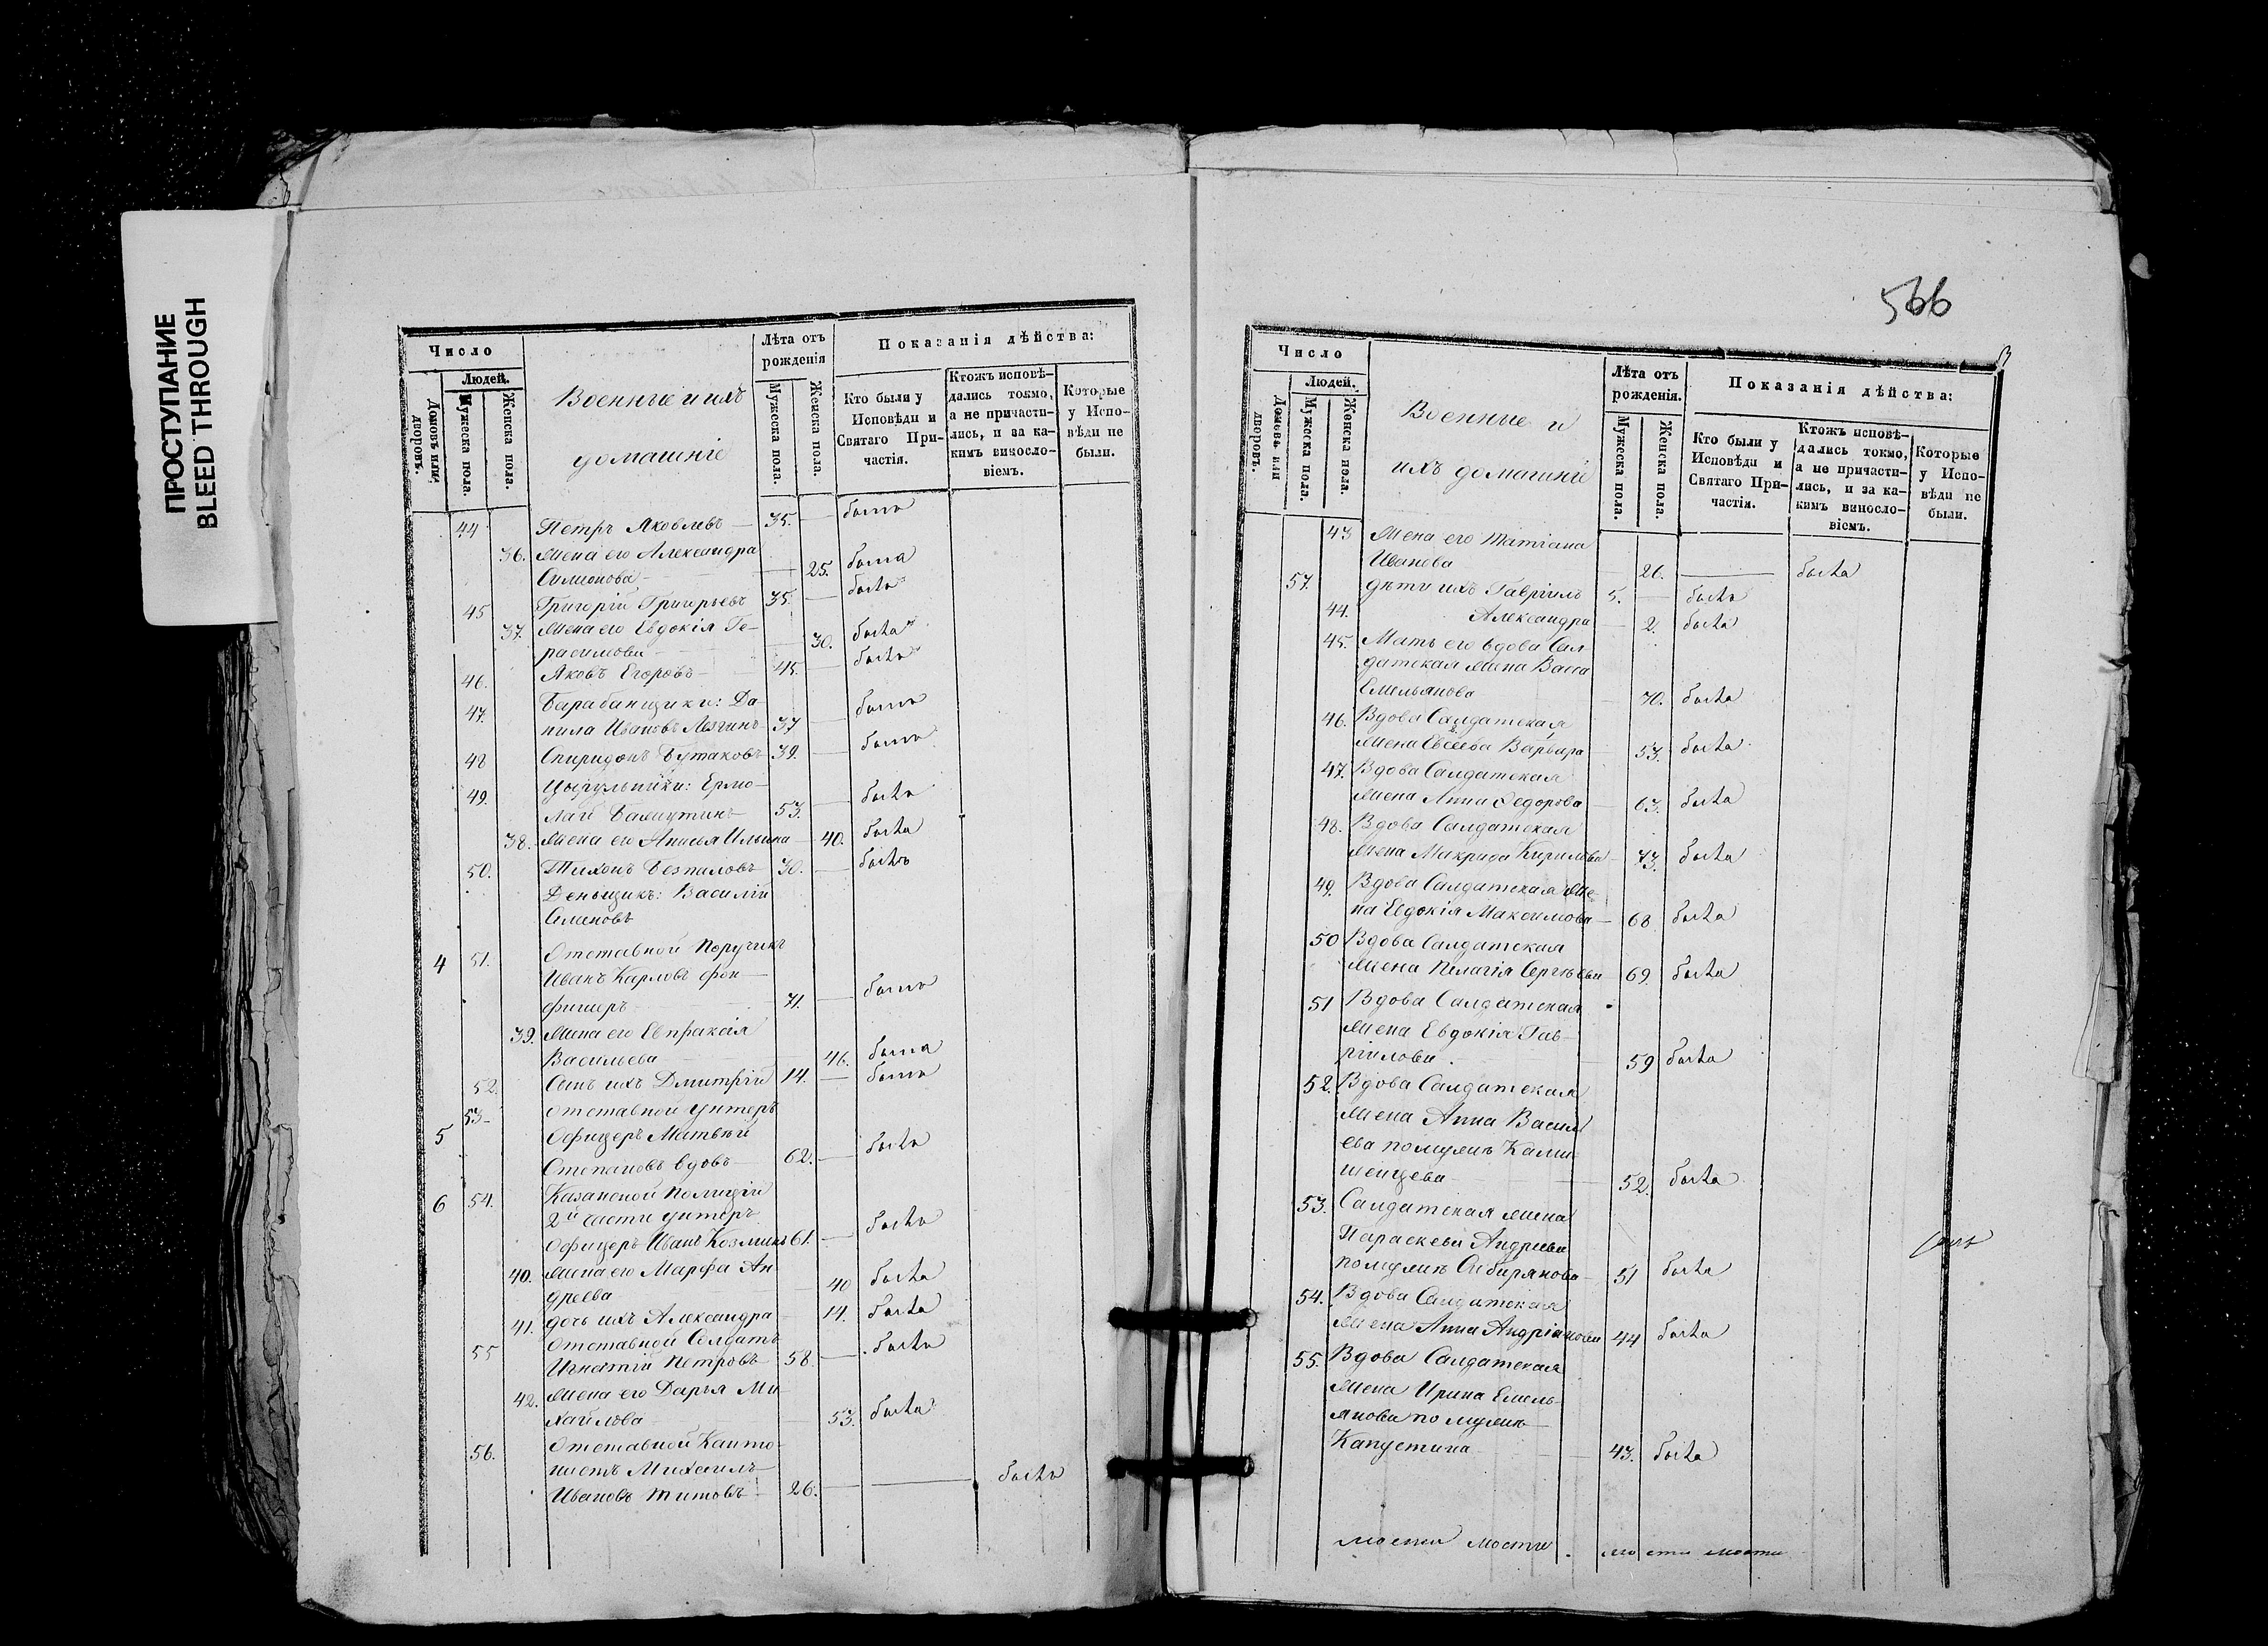 ПРОСТУПАНИЕ
BLEED THROUGH
Число
Людей.
Домовъ или дворовъ.
Мужеска пола.
Женска пола.
Военные и ихъ
домашніе
Лѣта отъ
рожденія
Мужеска пола.
Женска пола.
Показанія дѣйства:
Кто были у
Исповѣди и
Святаго При-
частія.
Ктожъ исповѣ-
дались токмо,
а не причасти-
лись, и за ка-
кимъ винослo-
віемъ.
Которые
у Испо-
вѣди не
были.
44 Петръ Яковлевъ 35. былъ
36. Жена его Александра
Симионова 25. была
45 Григорій Григорьевъ 35. былъ
37. Жена его Евдокія Ге-
расимова 30. была
46. Яковъ Егоровъ 45. былъ
47. Барабанщики: Да-
нила Ивановъ 37 былъ
48 Спиридонъ Бутаковъ 39. былъ
49. Ермо-
лай 53. былъ
38. Жена его Анисья Ильина 40. была
50. Тихонъ 30. былъ
Деньщикъ: Василій
Семеновъ
4 51. Отставной Поручикъ
Иванъ Карловъ фон
фишеръ 71. былъ
39. Жена его Евпраксія
Васильева 46. была
52. Сынъ ихъ Дмитрій 14. былъ
5 53 Отставной унтеръ
Офицеръ Матвѣй
Степановъ вдовъ 62. былъ
6 54. Казанской Полиціи
2й части унтеръ
Офицеръ Иванъ Козминъ 61. былъ
40. Жена его Марфа Ан-
дреева 40 была
41. дочь ихъ Александра 14. была
55 Отставной Солдатъ
Игнатій Петровъ 58 былъ
42. Жена его Дарья Ми-
хайлова 53. была
56. Отставной Канто-
нистъ Михаилъ
Ивановъ Титовъ 26. былъ
566
Число
Людей.
Домовъ или дворовъ.
Мужеска пола.
Женска пола.
Военные и
ихъ домашніе
Лѣта отъ
рожденія.
Мужеска пола.
Женска пола.
Показанія дѣйства:
Кто были у
Исповѣди и
Святаго При-
частія.
Ктожъ исповѣ-
дались токмо,
а не причасти-
лись, и за ка-
кимъ винослo-
віемъ.
Которые
у Испо-
вѣди не
были.
43 Жена его Татіана
Иванова 26. была
57. дѣти ихъ Гавріилъ 5. былъ
44. Александра 2. была
45. Мать его вдова Сал-
датская жена Васса
Емельянова 70. была
46. Вдова Салдатская
жена Евсеева Варвара 53. была
47. Вдова Салдатская
жена Анна Федорова 63. была
48. Вдова Салдатская
жена Макрида Кирилова 73. была
49. Вдова Салдатская же-
на Евдокія Максимова 68 была
50 Вдова Салдатская
жена Пелагія Сергѣева 69. была
51 Вдова Салдатская
жена Евдокія Гав-
ріилова 59 была
52. Вдова Салдатская
жена Анна Василь
ева по мужѣ
52. была
53. Салдатская жена
Параскева Андреева
по мужѣ Сибирякова 51 была
54. Вдова Салдатская
жена Анна Андріанова 44 была
55. Вдова Салдатская
жена Ирина Емель-
янова по мужѣ
Капустина 43. была